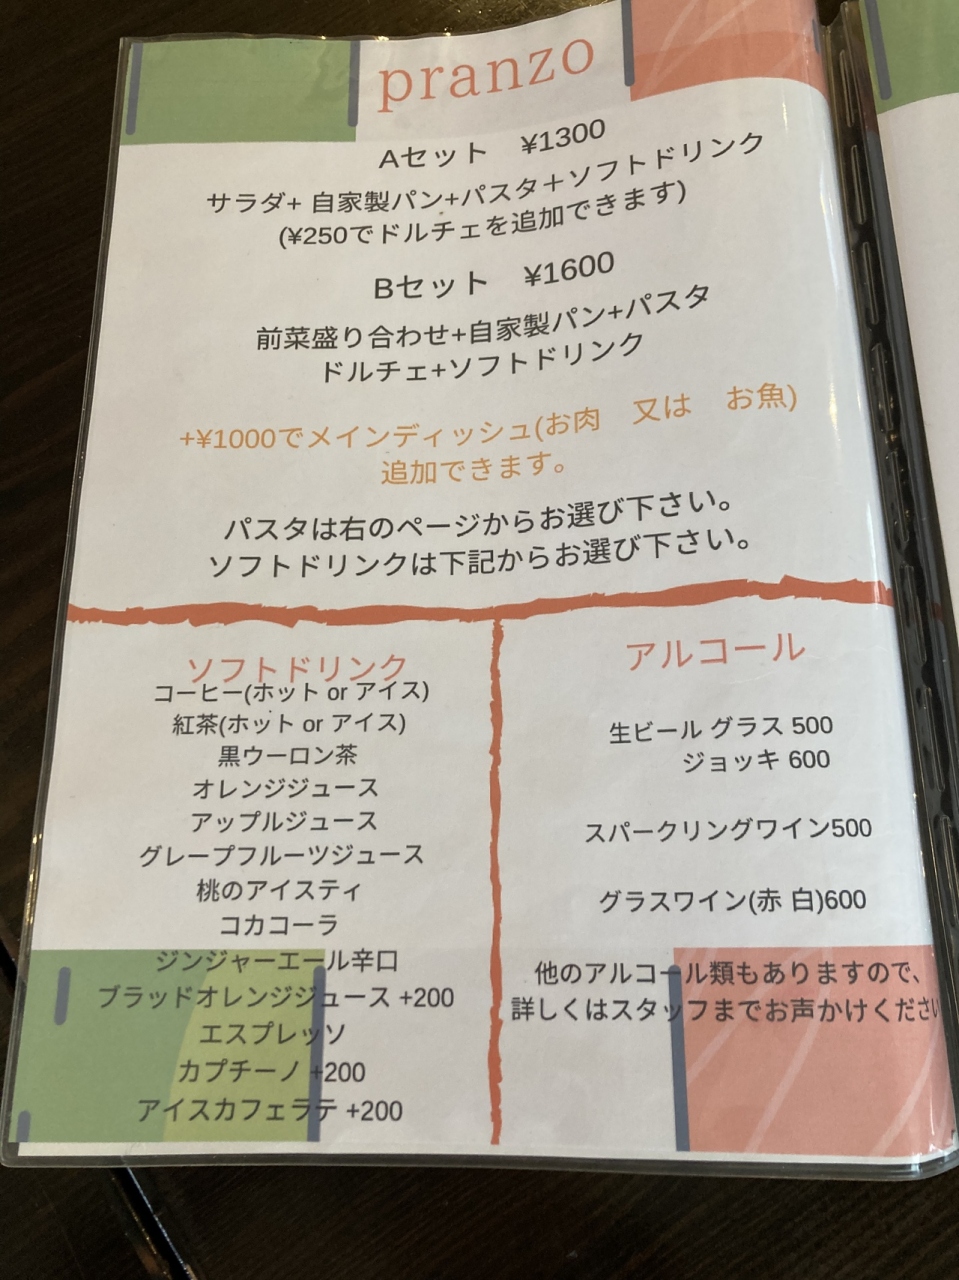 pranzo
Aセット ¥1300
サラダ+ 自家製パン+パスタ＋ソフトドリンク
(¥250でドルチェを追加できます)
Bセット ¥1600
前菜盛り合わせ+自家製パン+パスタ
ドルチェ+ソフトドリンク
+¥1000でメインディッシュ(お肉 又は お魚)
追加できます。
パスタは右のページからお選び下さい。
ソフトドリンクは下記からお選び下さい。
ソフトドリンク
コーヒー(ホット or アイス)
紅茶(ホット or アイス)
黒ウーロン茶
オレンジジュース
アップルジュース
グレープフルーツジュース
桃のアイスティ
コカコーラ
ジンジャーエール辛口
ブラッドオレンジジュース +200
エスプレッソ
カプチーノ +200
アイスカフェラテ +200
アルコール
生ビール グラス 500
ジョッキ 600
スパークリングワイン500
グラスワイン(赤 白)600
他のアルコール類もありますので、
詳しくはスタッフまでお声かけください